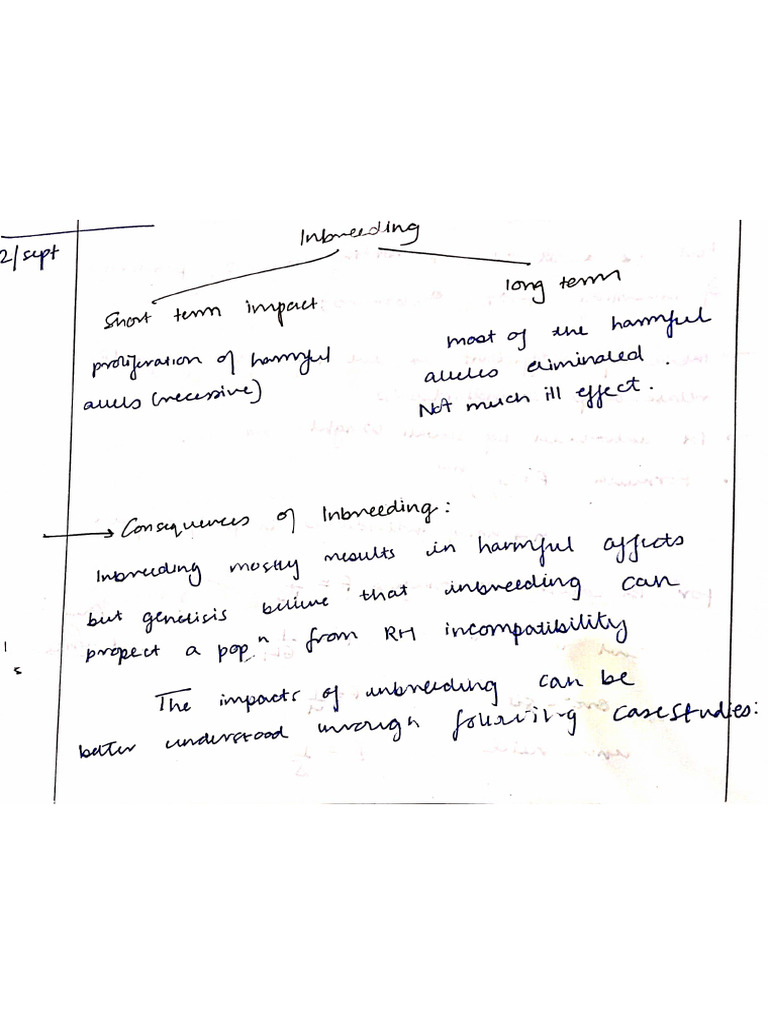 2/sept
Inbreeding
Short term impact
proliferation of harmful
allels (recessive)
long term
most of the harmful
alleles eliminated.
Not much ill effect.
Consequences of Inbreeding:
Inbreeding mostly results in harmful affects
but genetisis believe that inbreeding can
propect a popn from RH incompatibility
The impacts of inbreeding can be
better understood through following case studies: